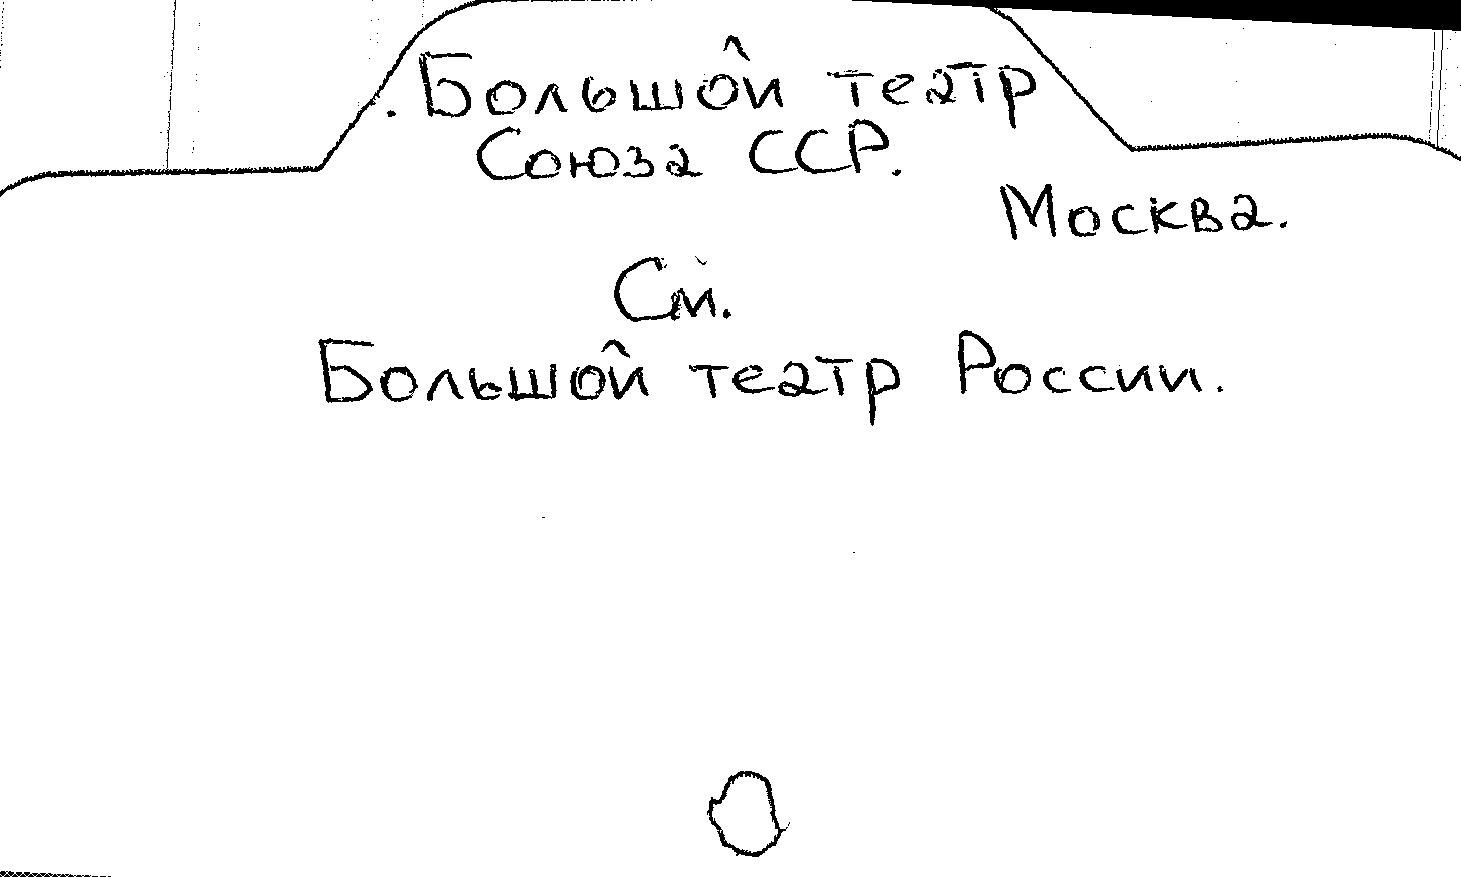 Большой театр
Союза ССР.
Москва.
См.
Большой театр России.